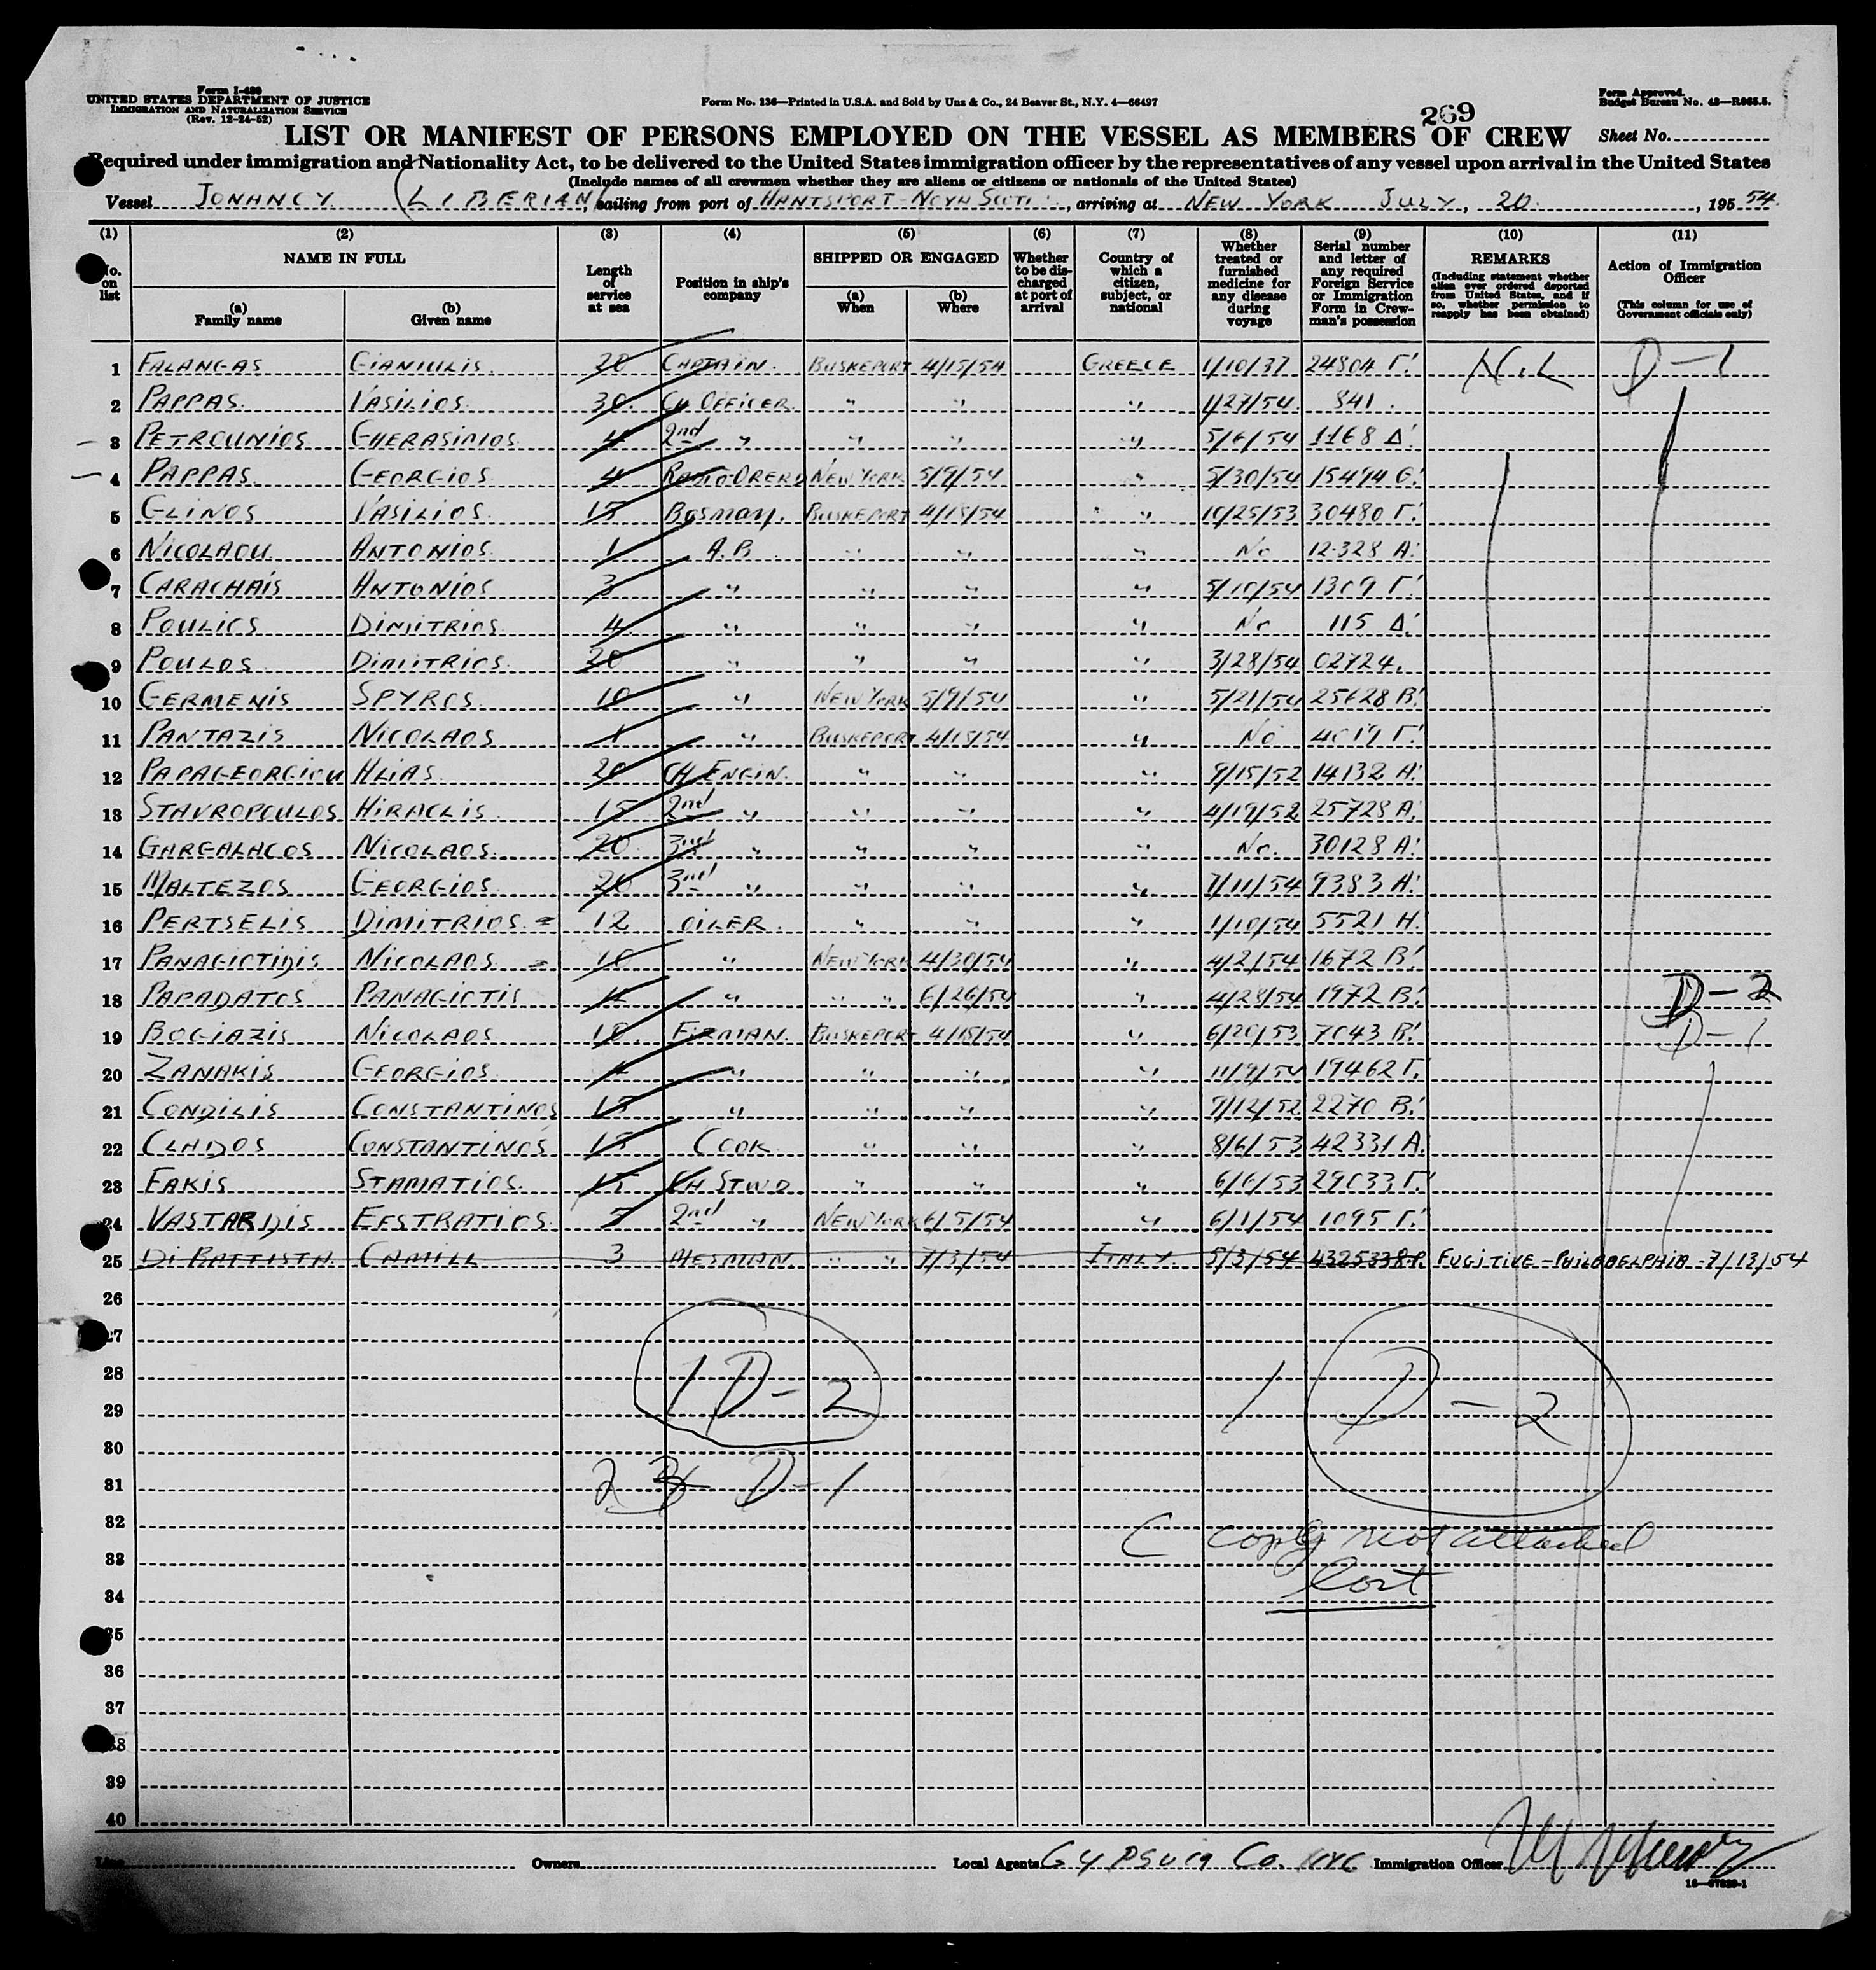 Form I-480
UNITED STATES DEPARTMENT OF JUSTICE
IMMIGRATION AND NATURALIZATION SERVICE
(Rev. 12-24-52)
Form No. 136—Printed in U.S.A. and Sold by Unz & Co., 24 Beaver St., N.Y. 4—66497
Form Approved.
Budget Bureau No. 43—R065.5.
269
LIST OR MANIFEST OF PERSONS EMPLOYED ON THE VESSEL AS MEMBERS OF CREW Sheet No.
Required under immigration and Nationality Act, to be delivered to the United States immigration officer by the representatives of any vessel upon arrival in the United States
(Include names of all crewmen whether they are aliens or citizens or nationals of the United States)
Vessel JONANCY (LIBERIAN), sailing from port of HANTSPORT-, arriving at NEW YORK JULY, 20, 1954
(1) (2) (3) (4) (5) (6) (7) (8) (9) (10) (11)
No. on list NAME IN FULL (a) Family name (b) Given name Length of service at sea Position in ship's company SHIPPED OR ENGAGED (a) When (b) Where Whether to be discharged at port of arrival Country of which a citizen, subject, or national Whether treated or furnished medicine for any disease during voyage Serial number and letter of any required Foreign Service or Immigration Form in Crewman's possession REMARKS (Including statement whether alien ever ordered deported from United States, and if so, whether permission to reapply has been obtained) Action of Immigration Officer (This column for use of Government officials only)
1 FALANGAS GIANIULIS 20 CAPTAIN. BUSKEPORT 4/15/54 GREECE 1/10/37 24804 Γ! N.L D-1
2 PAPPAS VASILIOS 30. CH OFFICER. " " " 1/27/54 841.
3 PETROUNIOS GHERASIMOS 4 2nd " " " " 5/6/54 1168 Δ!
4 PAPPAS. GEORGIOS 4 NEW YORK 5/9/54 " 5/30/54 15494
5 GLINOS VASILIOS 15 BOSMAN. BUSKEPORT 4/15/54 " 10/25/53 30480 Γ!
6 NICOLAOU ANTONIOS 1 A.B. " " " No 12328 A!
7 CARACHAIS ANTONIOS 3 " " " " 5/10/54 1309 Γ!
8 POULIOS DIMITRIOS 4 " " " " No 115 Δ!
9 POULOS DIMITRIOS. 20 " " " " 3/28/54 02724.
10 GERMENIS SPYROS 10 " NEW YORK 5/9/54 " 5/21/54 25628 B!
11 PANTAZIS NICOLAOS 1 " BUSKEPORT 4/15/54 " No 4019 Γ!
12 PAPAGEORGIOU HLIAS. 20 CH ENGIN. " " " 9/15/52 14132 A!
13 STAVROPOULOS HIRACLIS 15 2nd " " " " 4/19/52 25728 A!
14 GARGALACOS NICOLAOS 20 3rd " " " " No. 30128 A!
15 MALTEZOS GEORGIOS 20 3nd " " " " 7/11/54 9383 A!
16 PERTSELIS DIMITRIOS. = 12 OILER. " " " 1/10/54 5521 H!
17 PANAGIOTIDIS NICOLAOS = 10 " NEW YORK 4/30/54 " 4/2/54 1672 B!
18 PAPADATOS PANAGIOTIS 4 " " " 6/26/54 " 4/28/54 1972 B! D-2
19 BOGIAZIS NICOLAOS 18. FIRMAN. BUSKEPORT 4/15/54 " 6/20/53 7043 B! D-1
20 ZANAKIS GEORGIOS 4 " " " " 11/9/54 19462 Γ.
21 CONDILIS CONSTANTINOS 15 " " " " 9/12/52 2270 B!
22 CLADOS CONSTANTINOS 15 COOK " " " 8/6/53 42331 A.
23 FAKIS STAMATIOS. 15 CH STWD " " " 6/6/53 29033 Γ!
24 VASTARDIS EFSTRATIOS. 5 2nd " NEW YORK 6/5/54 " 6/1/54 1095 Γ!
25 Di BATTISTA CAMILL 3 MESMAN. " " 7/3/54 ITALY. 5/3/54 FUGITIVE - PHILADELPHIA - 7/13/54
26
27
28 1 D-2 1 D-2
29
30
31 23 D-1
32 C copy not attached
33 lost
34
35
36
37
38
39
40
Line Owners Local Agents Gypsum Co. NYC Immigration Officer
16—67829-1